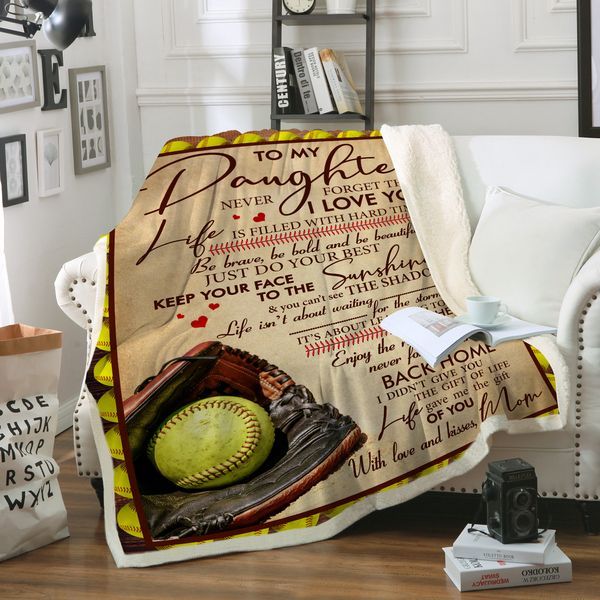 TO MY
Daughte
NEVER FORGET TH
I LOVE YO
Life IS FILLED WITH HARD TIM
Be brave, be bold and be beautifu
JUST DO YOUR BEST
KEEP YOUR FACE
TO THE Sunshin
& you can't see THE SHADO
Life isn't about waiting for the storm
IT'S ABOUT LE THE
Enjoy the
never fo
BACK HOME
I DIDN'T GIVE YOU
THE GIFT OF LIFE
Life gave me the gift
OF YOU
Mom
With love and kisses,
CENTURY
Dentro di
E
BCDE
HIJK
N
WXYZ
KOŁODKO
KOŁODKO